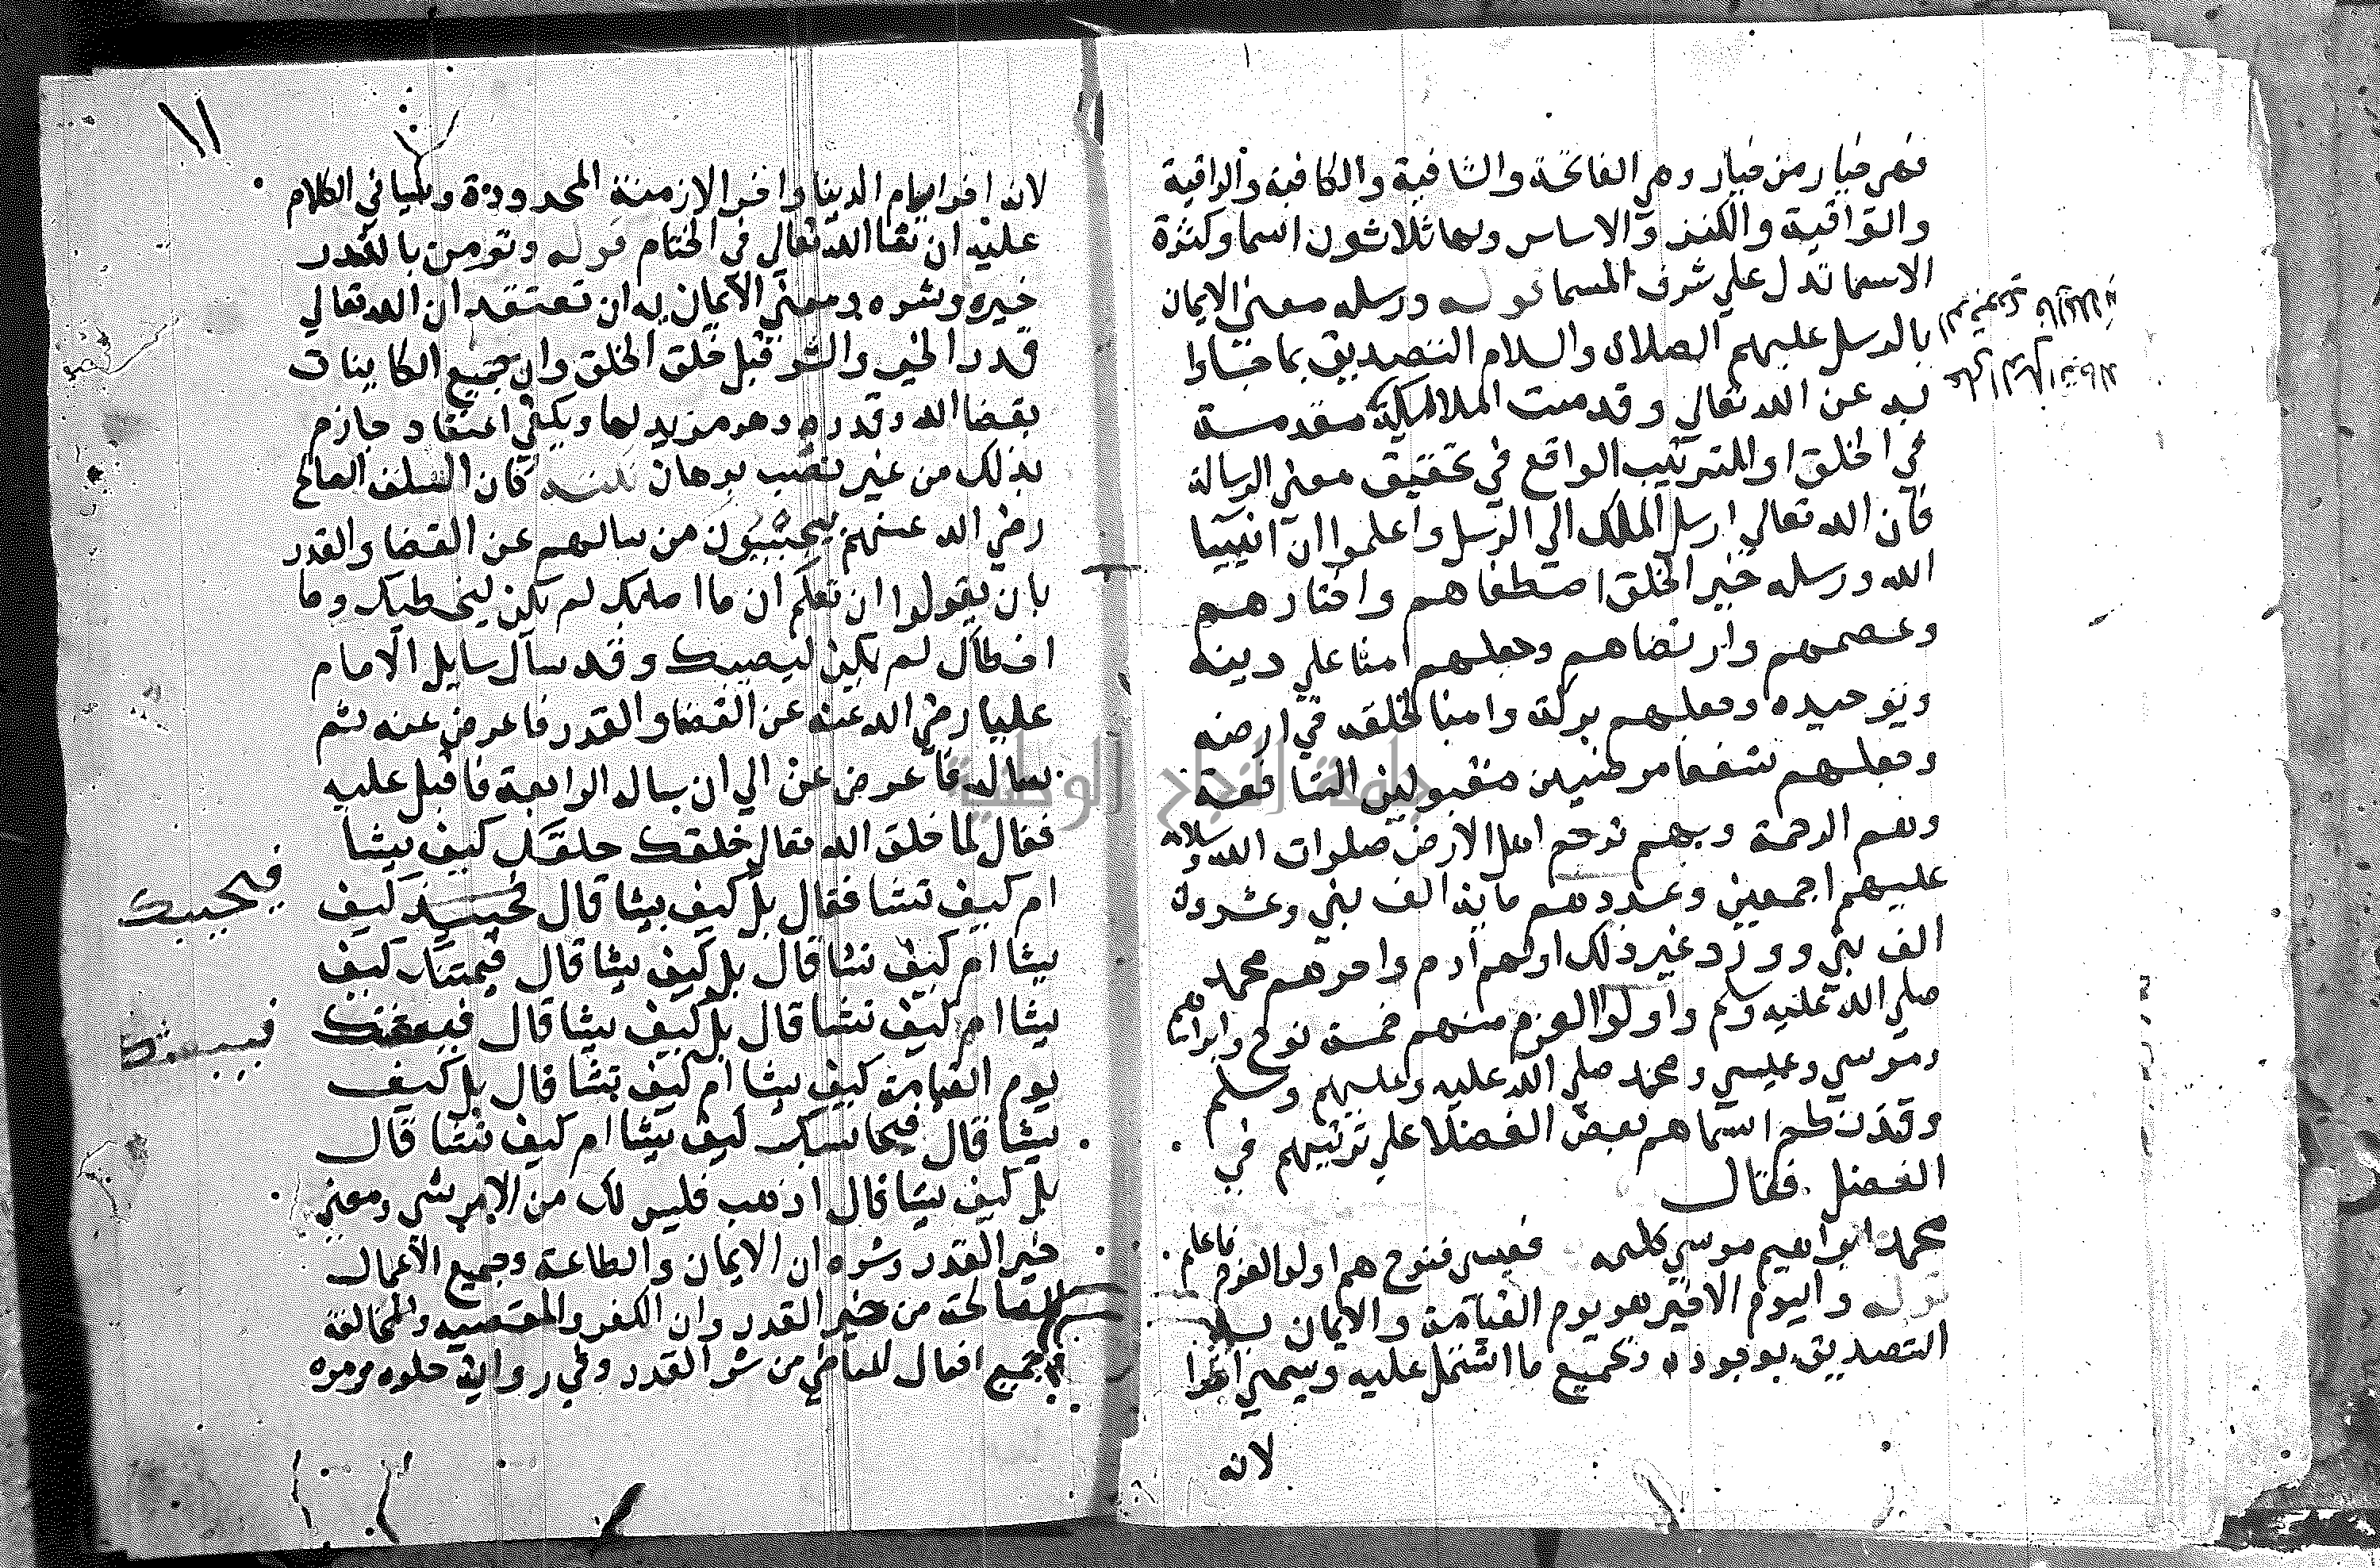 فهي خيار من خيار وهي الفاتحة والشافية والكافية والواقية
والواقية والكنز والاساس ولها ثلاثون اسما وكثرة
الاسما تدل علي شرف المسما قوله ورسله معني الايمان
بالرسل عليهم الصلاة والسلام التصديق بما جاءوا
به عن الله تعالي وقدمت الملائكة مقدمة
في الخلق او للترتيب الواقع في تحقيق معني الرسالة
فان الله تعالي ارسل الملك الي الرسل واعلموا ان انبيا
الله ورسله خير الخلق اصطفاهم واختارهم
وعصمهم وارتضاهم وجعلهم امنا علي دينه
وتوحيده وجعلهم بركة وامنا لخلقه في ارضه
وجعلهم شفعا مرضيين مقبولين الشافعة
وهم الرحمة وبهم ترحم اهل الارض صلوات الله وسلامه
عليهم اجمعين وعددهم ماية الف نبي وعشرون
الف نبي وورد غير ذلك اولهم ادم واخرهم محمد
صلي الله عليه وسلم واولو العزم منهم خمسة نوح وابراهيم
وموسي وعيسي ومحمد صلي الله عليه وعليهم وسلم
وقد نظم اسماهم بعض الفضلا علي ترتيبهم في
الفضل فقال
محمد ابراهيم موسي كليمه فعيسي فنوح هم اولو العزم فاعلم
قوله واليوم الاخير هو يوم القيامة والايمان به
التصديق بوجوده وبجميع ما اشتمل عليه وسمي اخرا
لانه
١١
لانه اخر ايام الدنيا واخر الازمنة المحدودة وسيأتي الكلام
عليه ان شا الله تعالي في الختام قوله وتومن بالقدر
خيره وشره ومعني الايمان به ان تعتقد ان الله تعالي
قدر الخير والشر قبل خلق الخلق وان جميع الكاينات
بقضا الله وقدره وهو مريد لها ويكفي اعتقاد جازم
بذلك من غير نصب برهان فان السلف الصالح
رضي الله عنهم يجيبون من سالهم عن القضا والقدر
بان يقولوا ان تعلم ان ما اصابك لم يكن ليخطيك وما
اخطاك لم يكن ليصيبك وقد سأل سايل الامام
عليا رضي الله عنه عن القضا والقدر فاعرض عنه ثم
ساله فاعرض عنه الي ان ساله الرابعة فاقبل عليه
فقال لما خلق الله تعالي خلقك خلقك كيف يشا
ام كيف تشا فقال بل كيف يشا قال كيف
فيحييك
يشا ام كيف تشا قال بل كيف يشا قال فيميتك كيف
يشا ام كيف تشا قال بل كيف يشا قال فيبعثك
يوم القيامة كيف يشا ام كيف تشا قال بل كيف
يشا قال فيحاسبك كيف يشا ام كيف تشا قال
بل كيف يشا قال اذهب فليس لك من الامر شي ومعني
خير القدر وشره ان الايمان والطاعة وجميع الاعمال
الصالحة من خير القدر وان الكفر والمعصيه والمخالفة
وجميع افعال المعاصي من شر القدر وفي رواية حلوه ومره
جامعة النجاح الوطنية